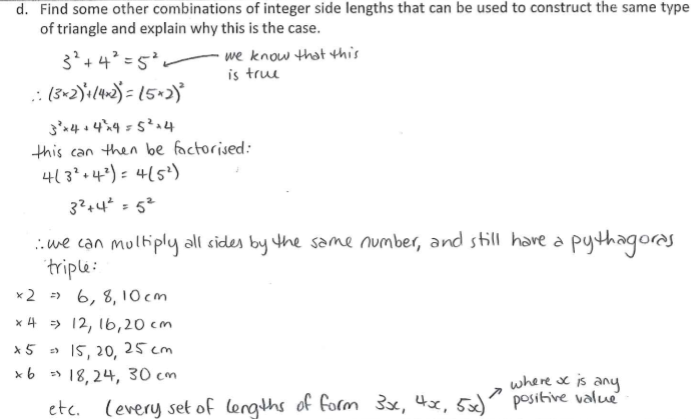 d. Find some other combinations of integer side lengths that can be used to construct the same type
of triangle and explain why this is the case.
3² + 4² = 5² ← we know that this
is true
∴ (3×2)²+(4×2)² = (5×2)²
3²×4 + 4²×4 = 5²×4
this can then be factorised:
4(3² + 4²) = 4(5²)
3² + 4² = 5²
∴ we can multiply all sides by the same number, and still have a pythagoras
triple:
×2 ⇒ 6, 8, 10 cm
×4 ⇒ 12, 16, 20 cm
×5 ⇒ 15, 20, 25 cm
×6 ⇒ 18, 24, 30 cm
etc. (every set of lengths of form 3x, 4x, 5x) ↗ where x is any
positive value